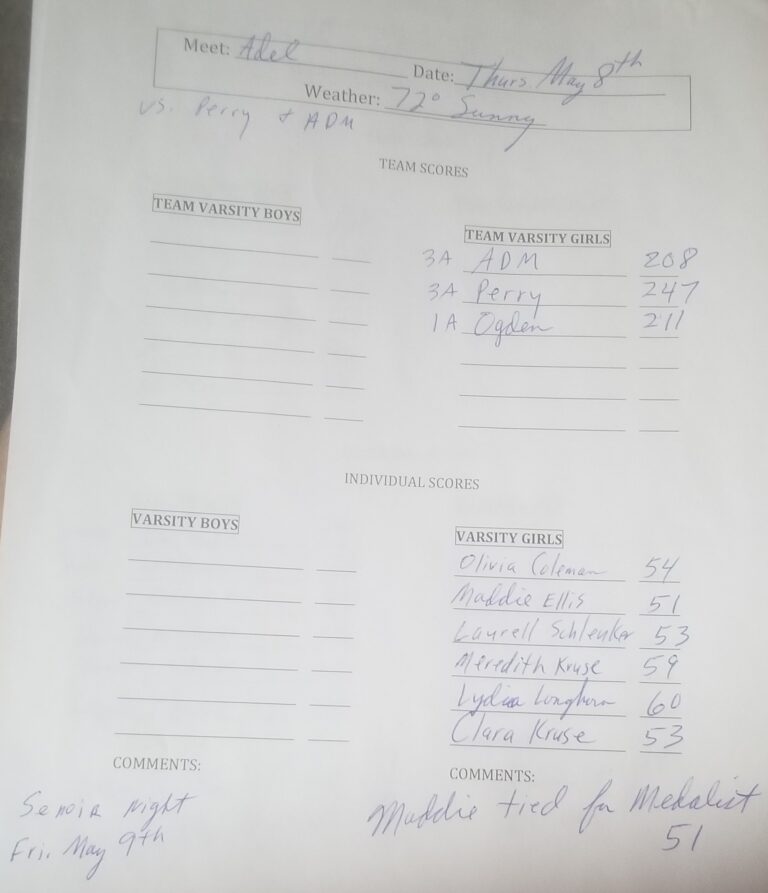 Meet: Adel
Date: Thurs May 8th
Weather: 72° Sunny
vs. Perry + ADM
TEAM SCORES
TEAM VARSITY BOYS
TEAM VARSITY GIRLS
3A ADM 208
3A Perry 247
1A Ogden 211
INDIVIDUAL SCORES
VARSITY BOYS
VARSITY GIRLS
Olivia Coleman 54
Maddie Ellis 51
Laurell Schlenker 53
Meredith Kruse 59
Lydia Longhorn 60
Clara Kruse 53
COMMENTS:
Senoir Night
Fri. May 9th
COMMENTS:
Maddie tied for Medalist
51